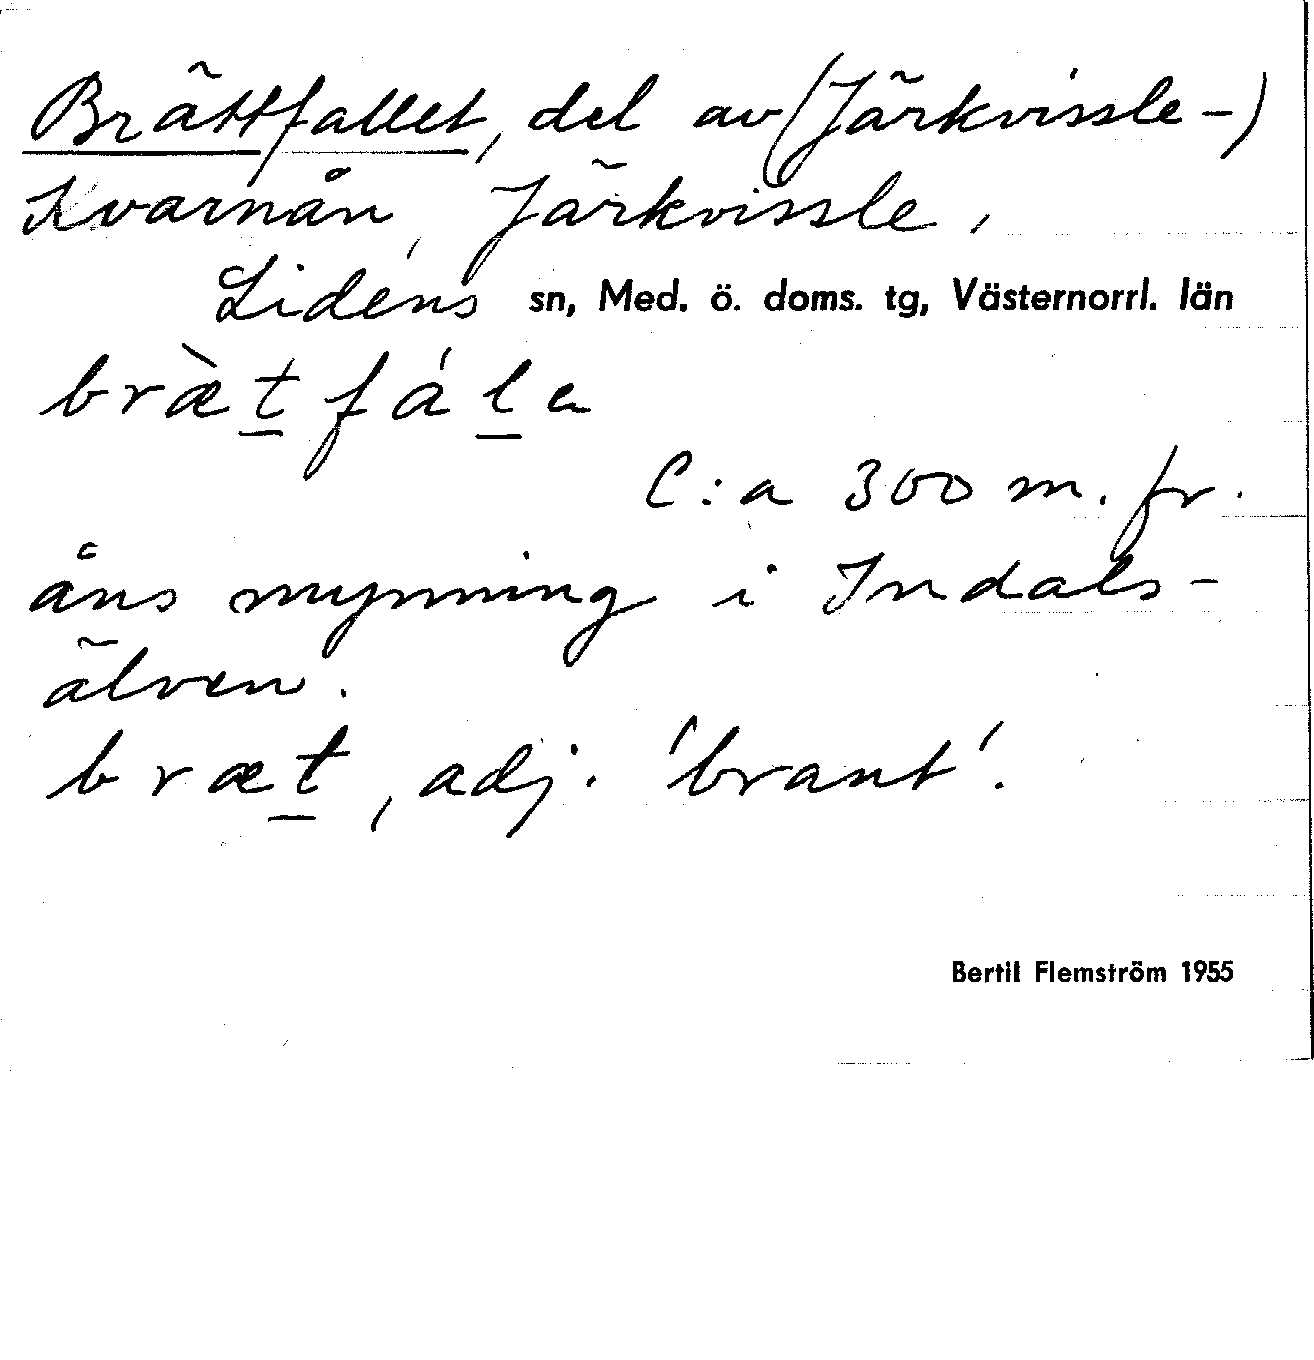 Brättfallet, del av (Järkvissle-)
Kvarnån, Järkvissle,
Lidens sn, Med. ö. doms. tg, Västernorrl. län
bræ̀t̲fál̲a
C:a 300 m. fr.
åns mynning i Indals-
älven.
bræt̲, adj. 'brant'.
Bertil Flemström 1955